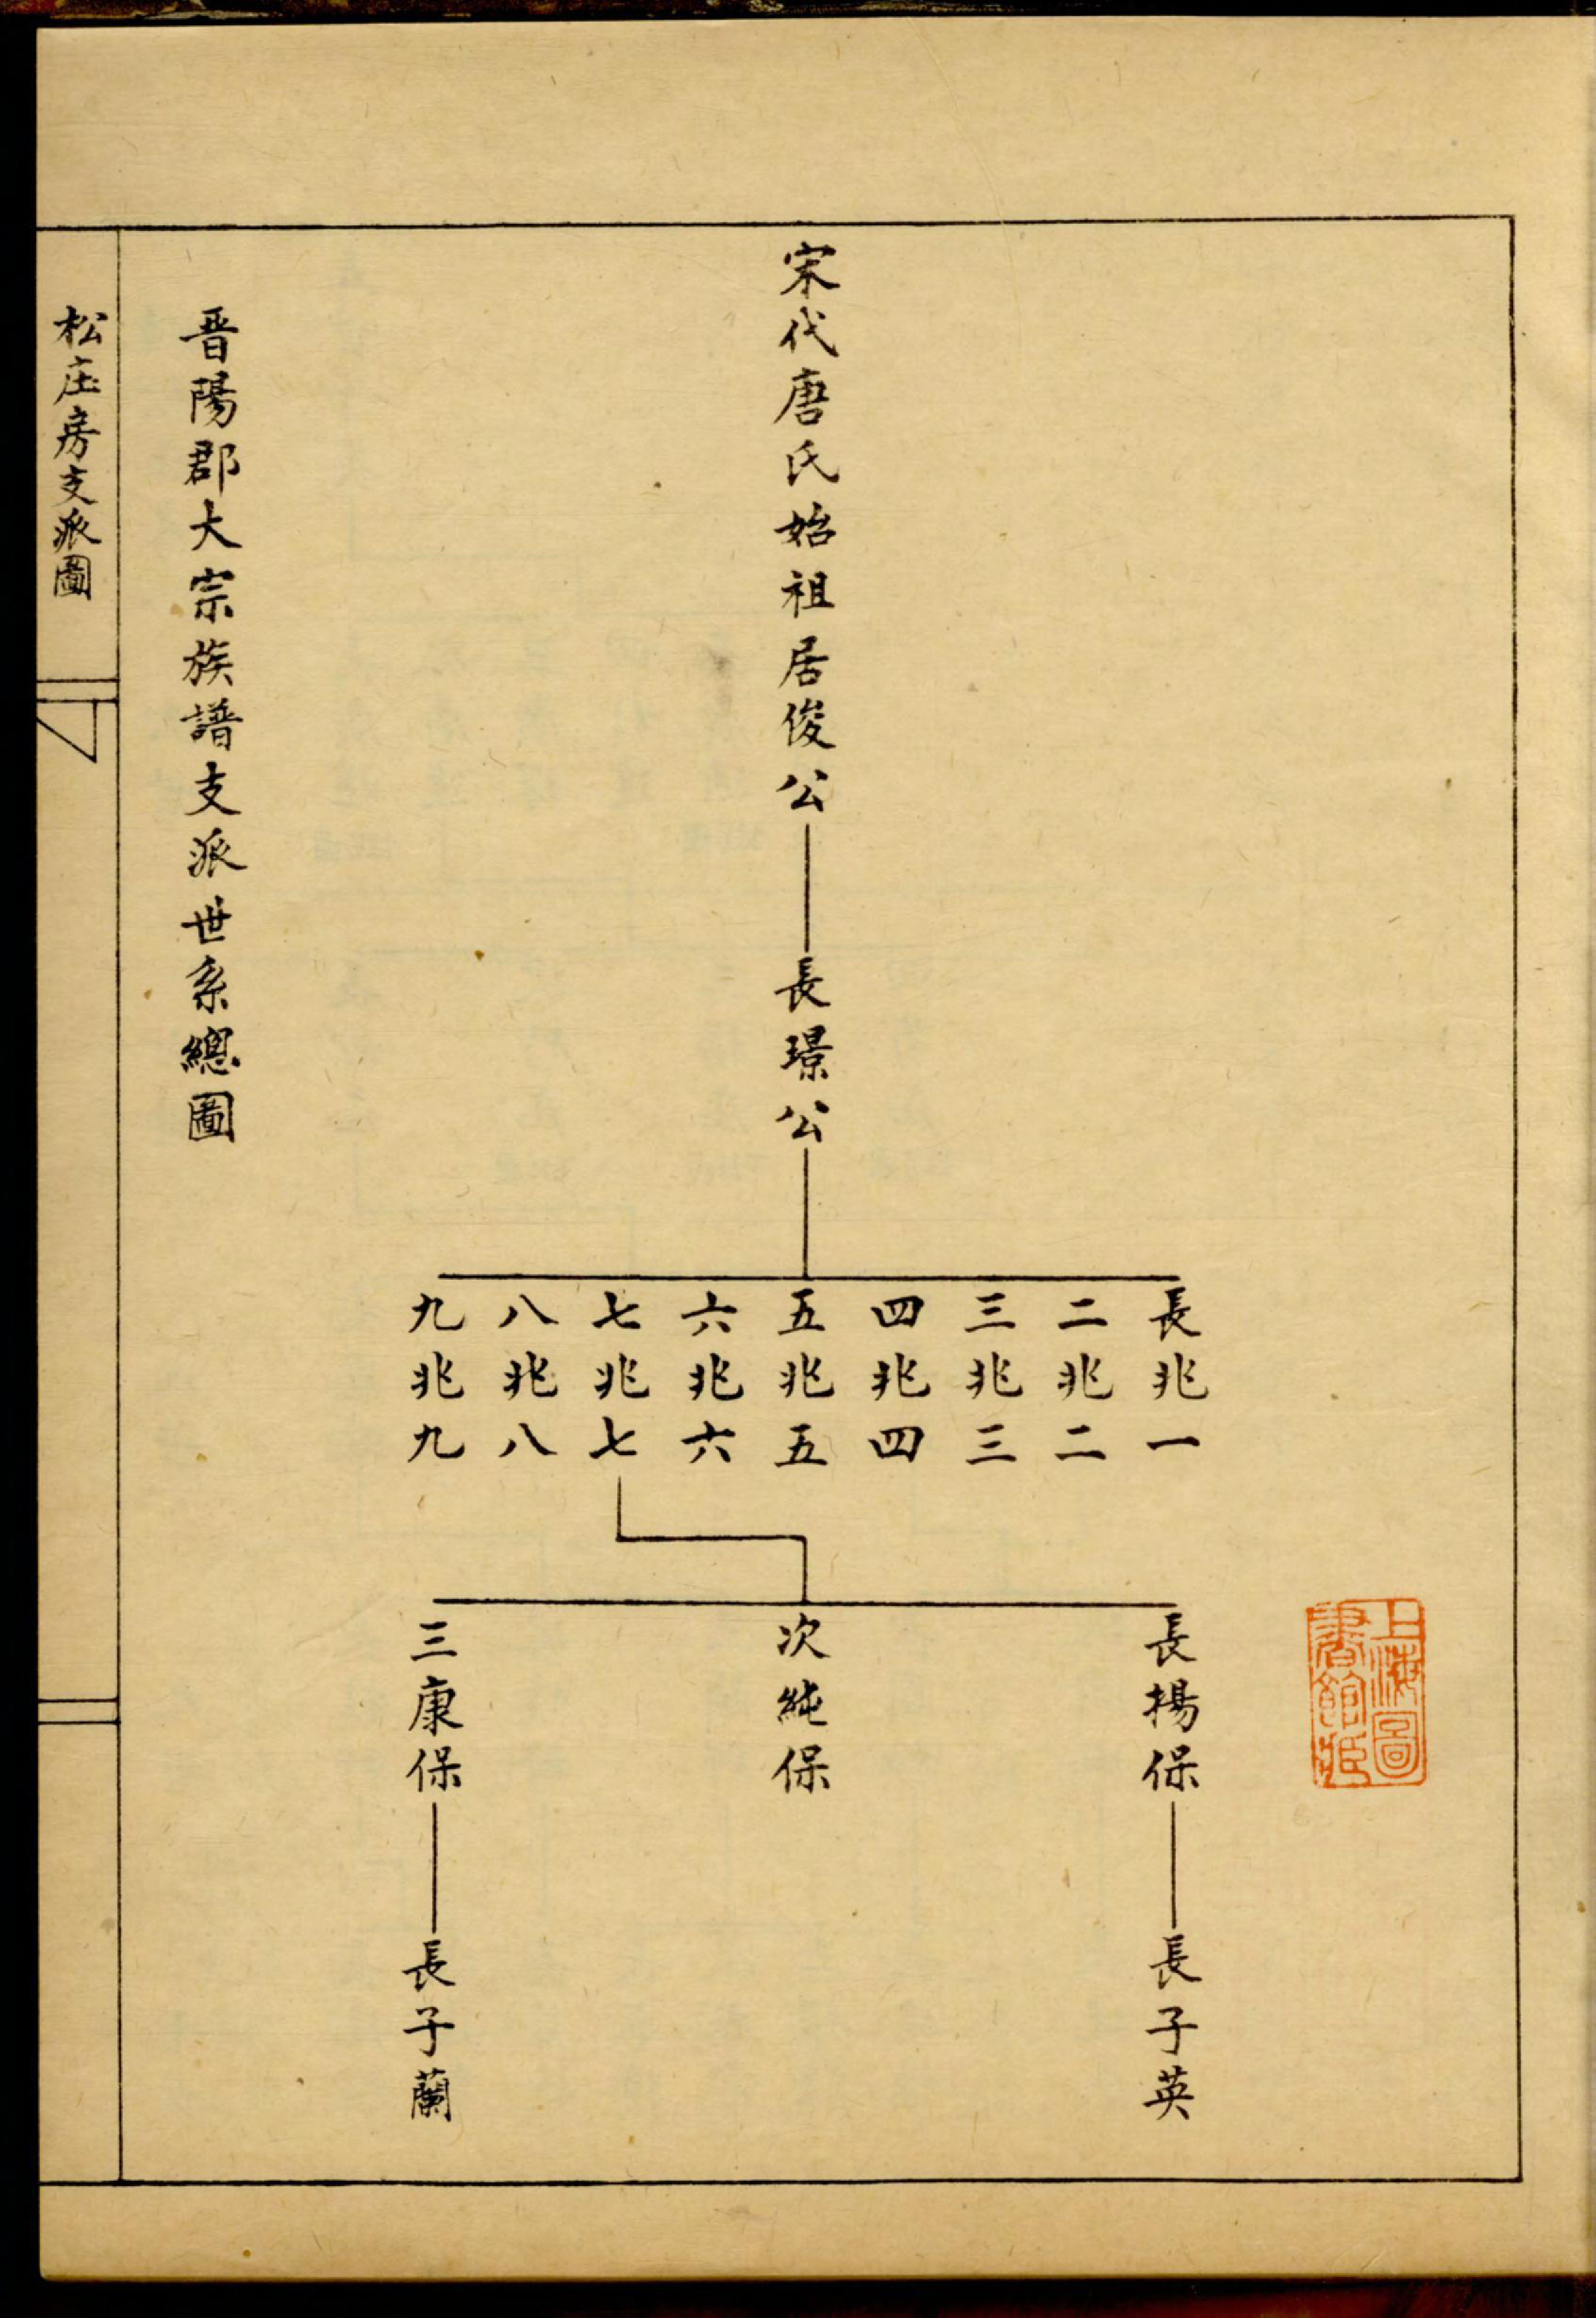 上海圖
書館藏
宋代唐氏始祖居俊公
長璟公
長兆一
二兆二
三兆三
四兆四
五兆五
六兆六
七兆七
八兆八
九兆九
長揚保
次純保
三康保
長子英
長子蘭
晋陽郡大宗族譜支派世系總圖
松庄房支派圖